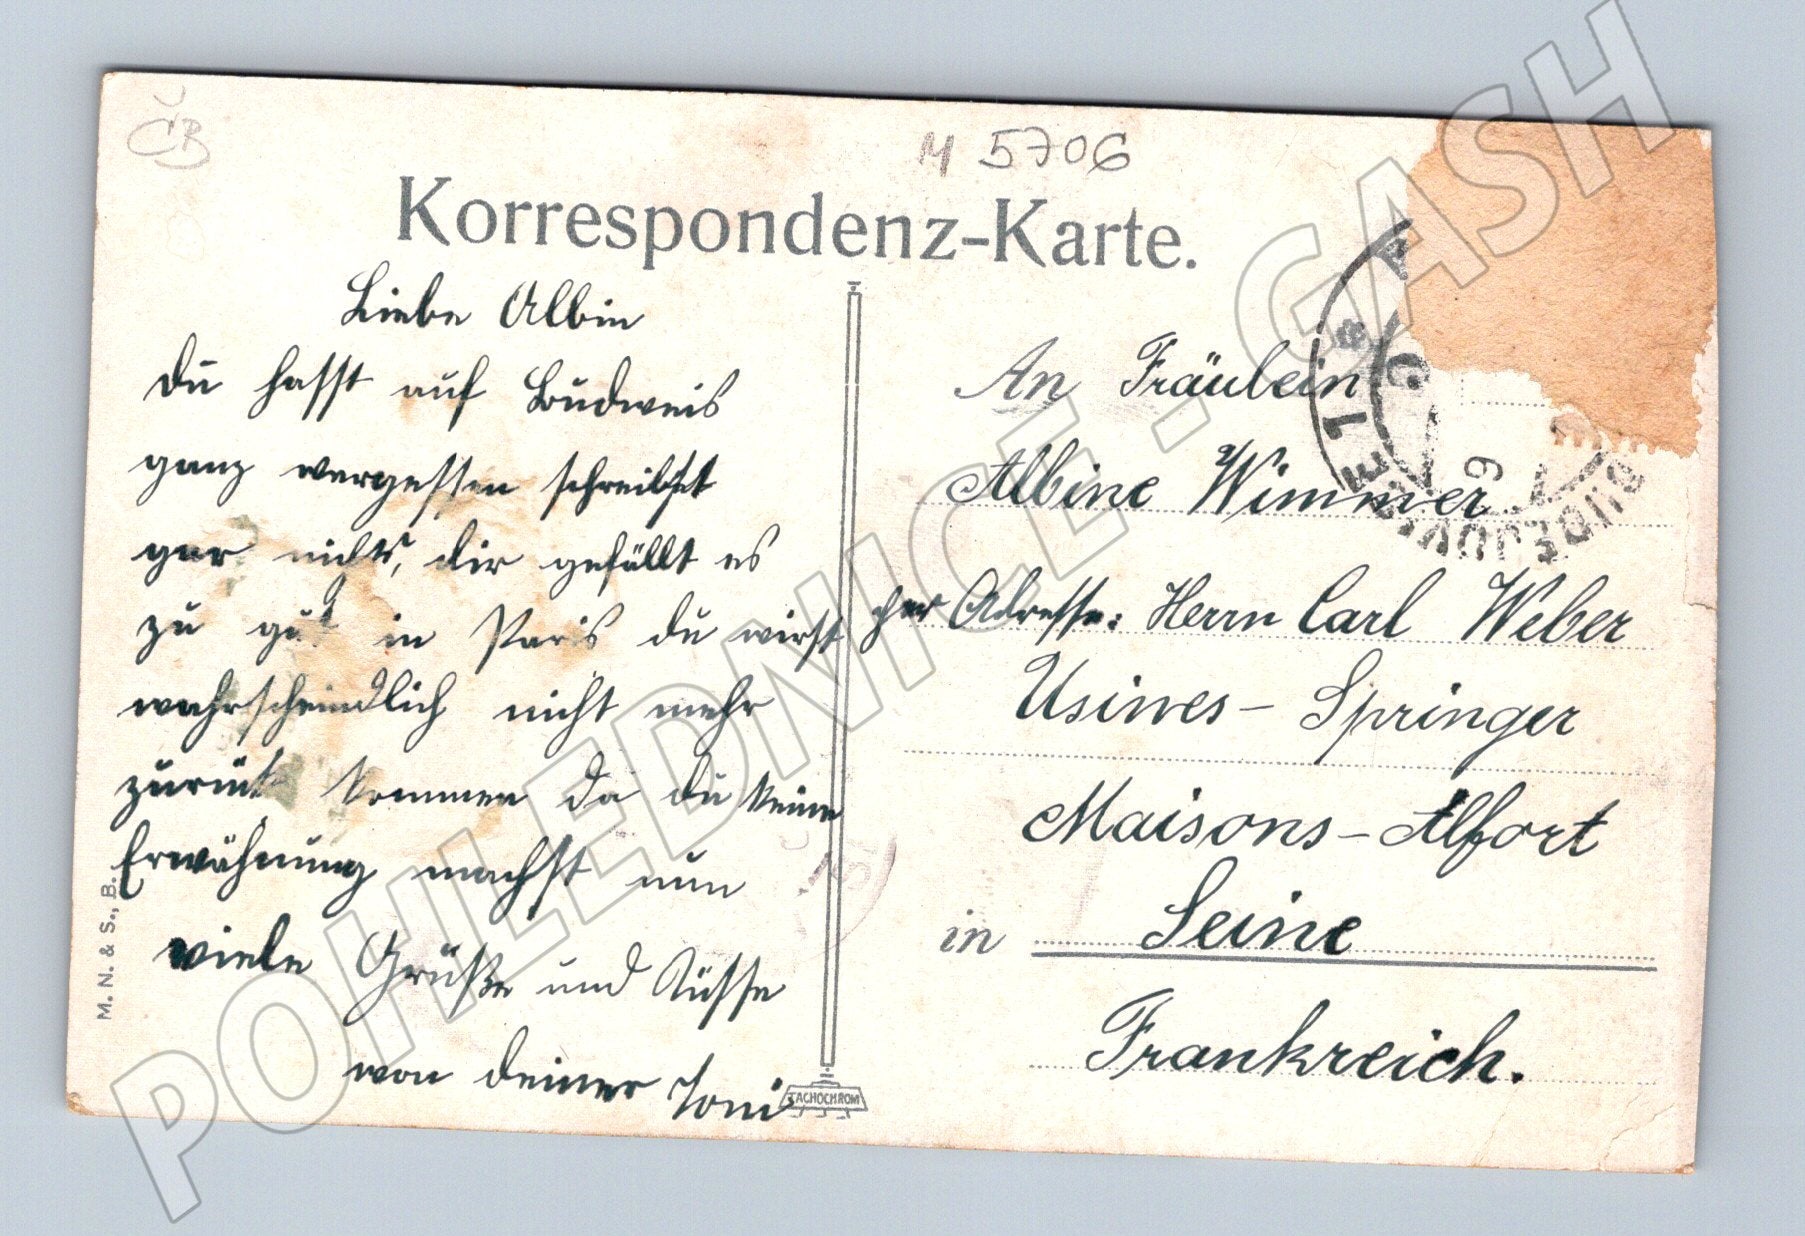 ČB
M 5706
Korrespondenz-Karte.
Liebe Albin
du hasst auf Budweis
ganz vergessen schreibst
gar nichts, dir gefällt es
zu gut in Paris du wirst
wahrscheindlich nicht mehr
zurück kommen da du keine
Erwähnung machst nun
viele Grüße und Küsse
von deiner Toni
M. N. & S., B.
TACHOCHROM
An Fräulein
Albine Wimmer
per Adresse: Herrn Carl Weber
Usines - Springer
Maisons - Alfort
in Seine
Frankreich.
BUDĚJOVICE 1
6
POHLEDNICE - GASH